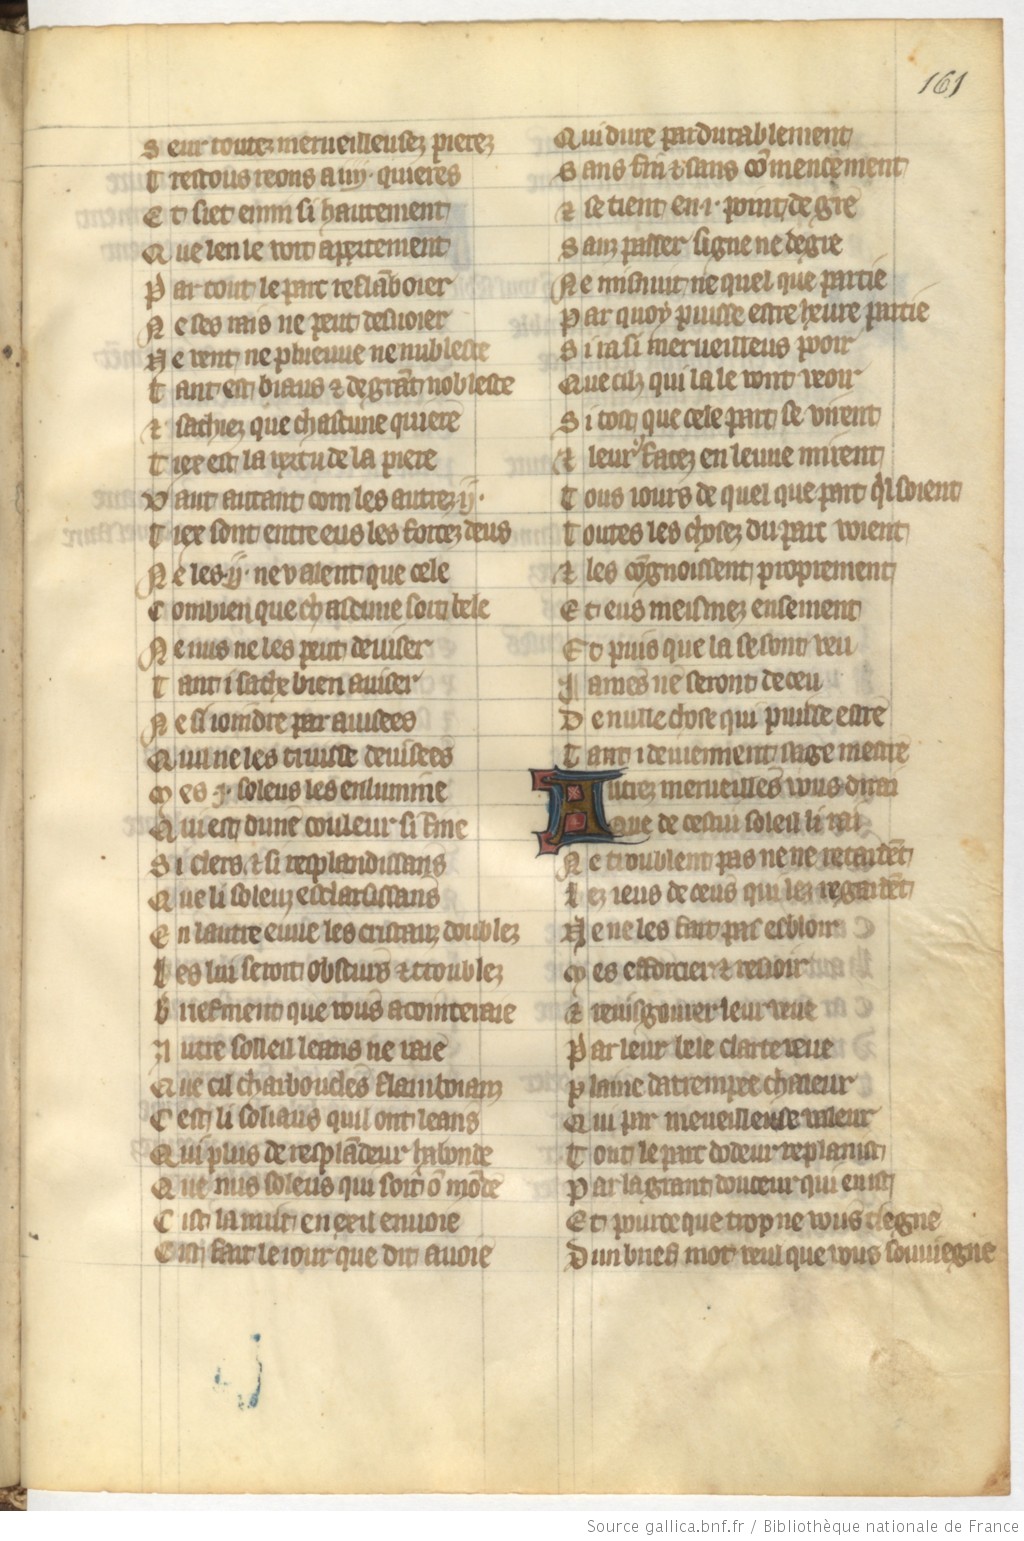 161
Seur toutez merueilleusez pierez
Trestous reons a iiij. quieres
Et siet enmi si hautement
Que len le voit appertement
Par tout le parc reflāboier
Ne ses rais ne peut desuoier
Ne vent ne pluieuue ne nublesce
Tant est biaus & de grāt noblesce
& sachiez que chascune quiere
Tiex est la vertu de la piere
Vaut autant com les autrez ij.
Tiex sont entre eus les forcez deus
Ne les .ij. ne valent que cele
Combien que chascune soit bele
Ne nus ne les peut deuiser
Tant i sache bien auiser
Ne si ioindre par auisees
Qui ne les truisse deuisees
Mes .j. soleus les enlumine
Qui est dune couleur si fine
Si clers & si resplandissans
Que li soleuz esclarsissans
En lautre euue les cristauz doublez
Les lui seroit obscurs & troublez
Briefment que vous aconteraie
Autre solleil leans ne raie
Que cil charboucles flamboianz
Cest li soliaus quil ont leans
Qui plus de resplādeur habonde
Que nus soleus qui soit ō mōde
Cist la nuit en exil enuoie
Cist fait le iour que dit auoie
Qui dure pardurablement
Sans fin & sans cōmencement
& se tient en .i. point de gre
Sanz passer signe ne degre
Ne minuit ne quel que partie
Par quoy puisse estre heure partie
Si ra si merueilleus pooir
Que cilz qui la le vont veoir
Si tost que cele part se virent
& leurs facez en leuue mirent
Tous iours de quel que part q'l soient
Toutes les chosez du parc voient
& les cōgnoissent proprement
Et eus meismez ensement
Et puis que la se sont veu
Iames ne seront deceu
De nulle chose qui puisse estre
Tant i deuiennent sage mestre
Autrez merueilles vous dirai
Que de cestui soleil li rai
Ne troublent pas ne ne retardēt
Lez ieus de ceus qui lez regardēt
Ne ne les fait pas esbloir
Mes efforcier & resioir
& reuigourer leur veue
Par leur bele clarte veue
Plaine datrempee chaleur
Qui par merueilleuse valeur
Tout le parc dodeur replanist
Par la grant douceur qui en ist
Et pource que trop ne vous tiegne
Dun brief mot veul que vous souuiegne
Source gallica.bnf.fr / Bibliothèque nationale de France